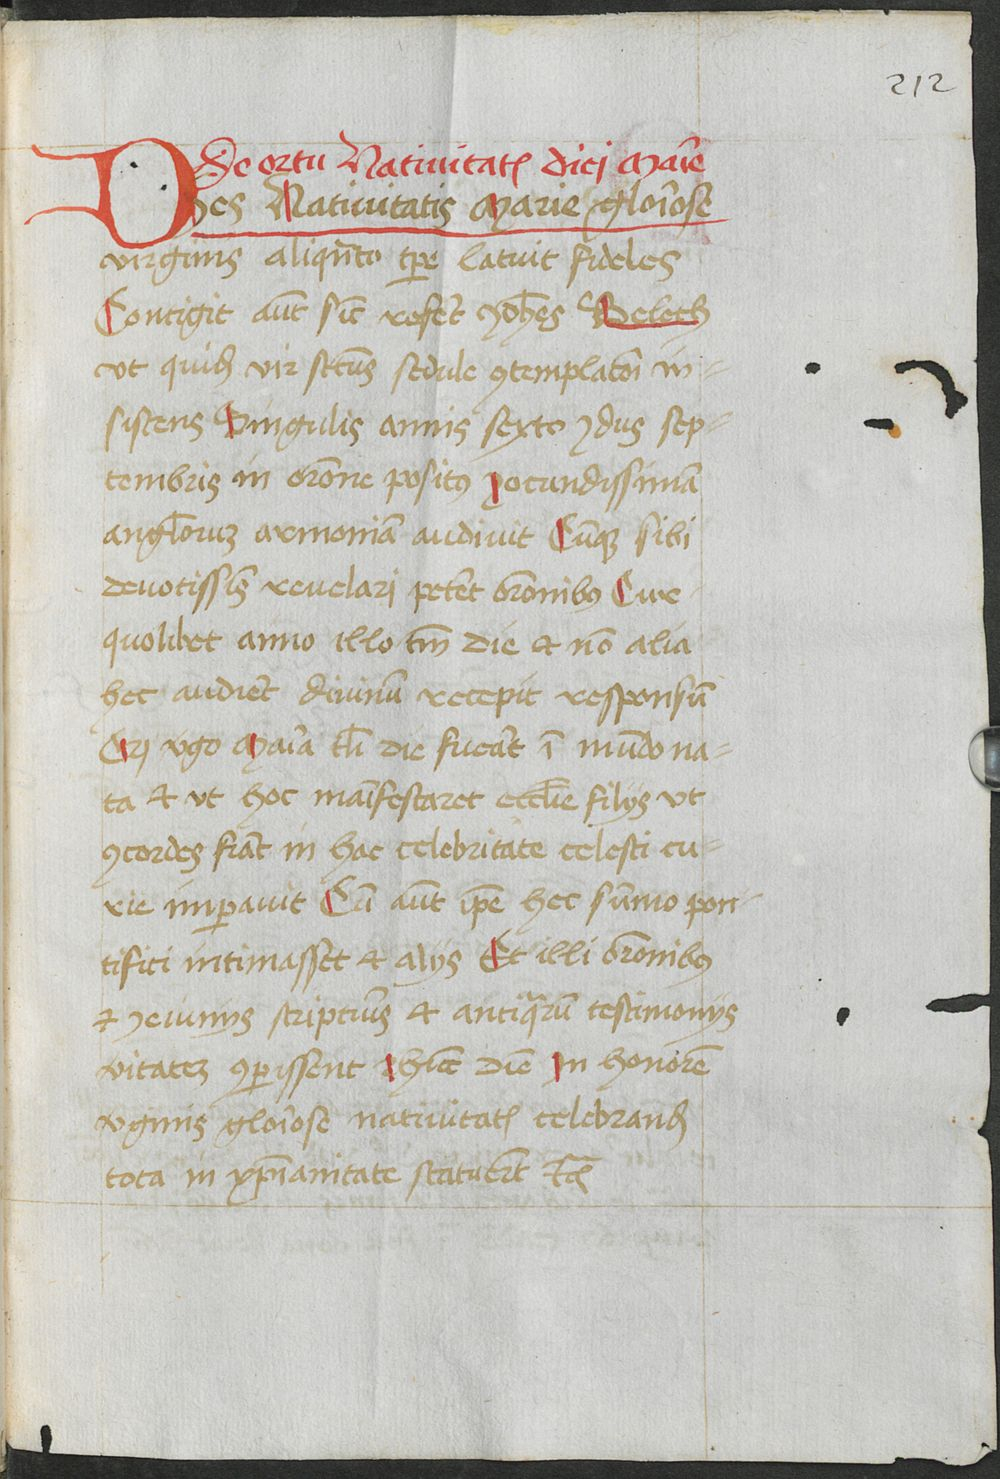 212
De ortu Natiuitatꝭ dici Marie
Dies Natiuitatis Marie glōiose
virginis aliqn̄to tꝑe latuit fideles
Contigit aūt sic̄ refert Joh̄es Beleth
vt quidꝫ vir sct̄us sedule ꝯtemplatōi in-
sistens Singulis annis sexto ydus sep-
tembris in orōne positꝰ Jocundissimā
angl̄orum armoniā audiuit Cūqꝫ sibi
deuotissīs reuelari petēt orōnibꝰ Cur
quolibet anno illo tm̄ die et nō alia
hec audiēt diuinū recepit responsū
virgo Maīa tali die fuerāt ī mūdo na-
ta et vt hoc maīfestaret eccl̄ie filijs vt
ꝯcordes fiāt in hac celebritate celesti cu-
rie imꝑauit Cū aūt ip̄e hec sūmo pon-
tifici intimasset et alijs Et illi orōnibꝰ
et Jeiunijs scriptur̄is et antiqͣrū testimonijs
vitatem ꝯꝑissent hūc diē In honorē
virginis glōiose natiuitatꝭ celebrandꝫ
tota in xp̄ianitate statuer̄t